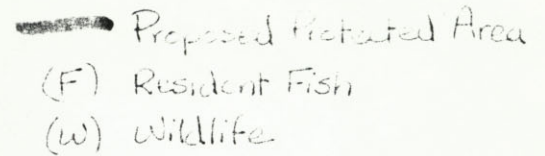 Proposed Protected Area
(F) Resident Fish
(W) Wildlife